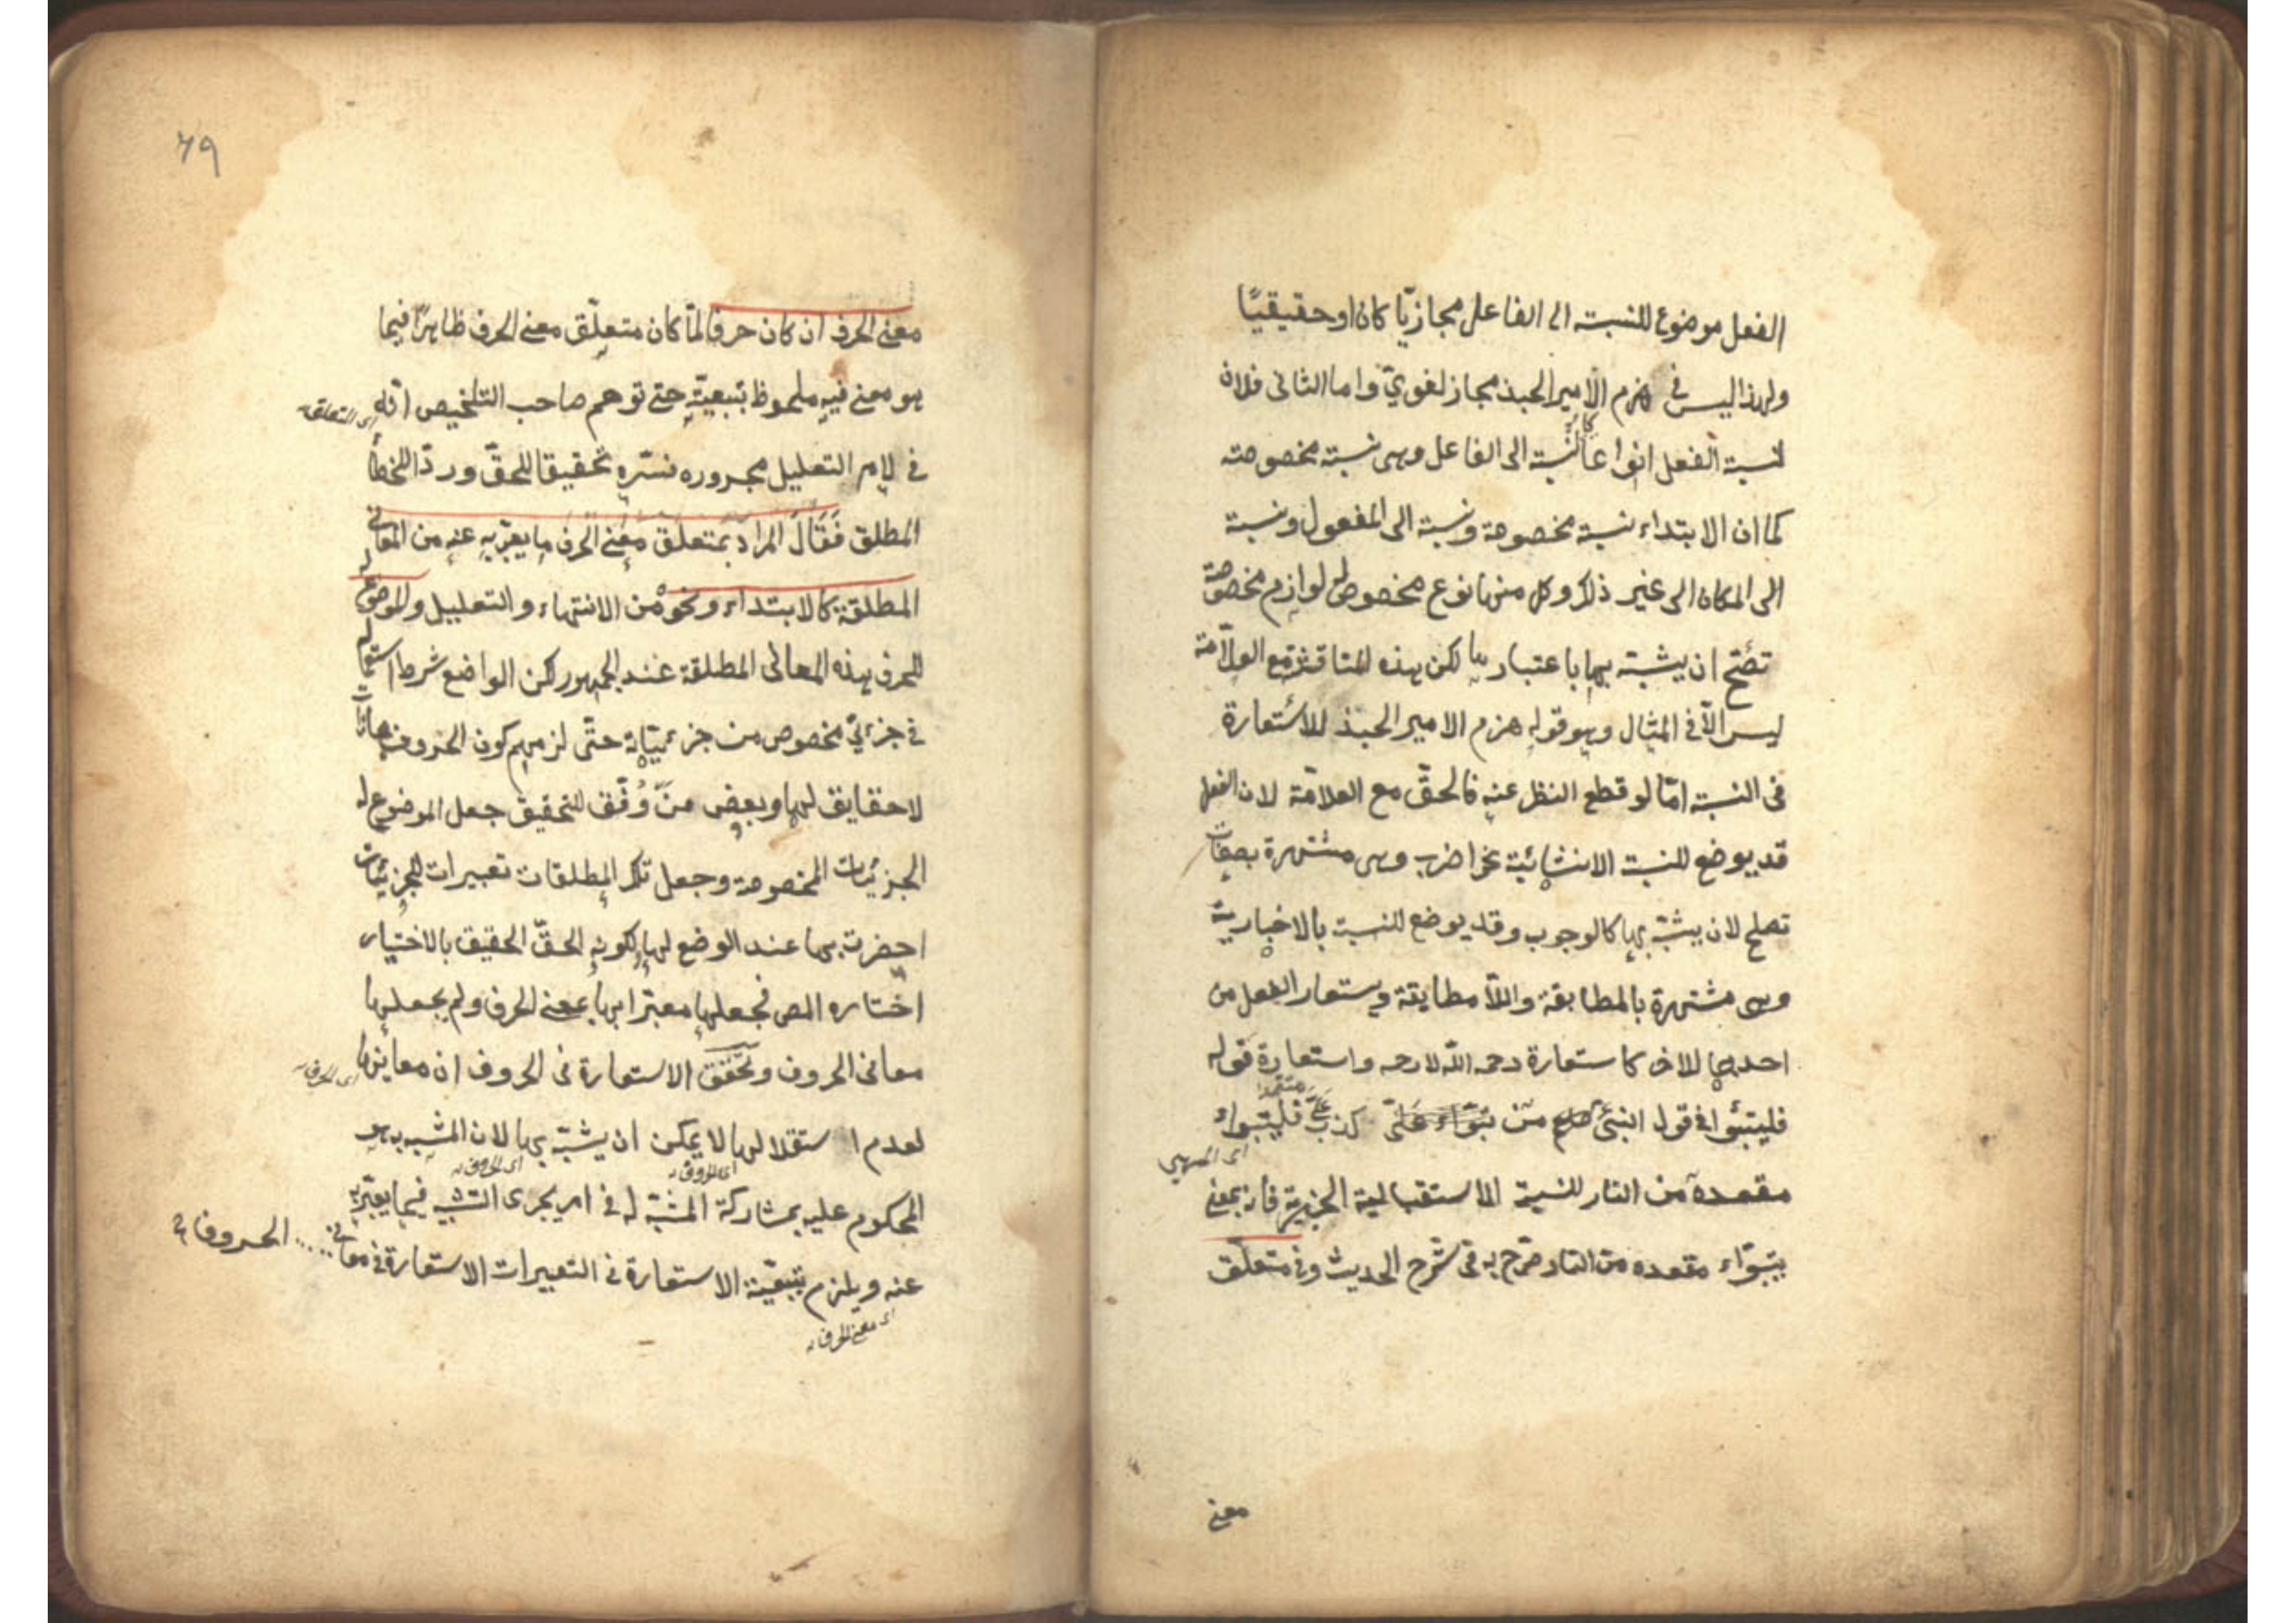 الفعل موضوع للنسبة الى الفاعل مجازيّا كان او حقيقيًا
ولهذا ليس في هزم الامير الجند مجاز لغويّ واما الثاني فلان
لنسبة الفعل انواعا كالنسبة الى الفاعل وهي نسبة مخصوصة
كما ان الابتداء نسبة مخصوصة ونسبة الى المفعول ونسبة
الى المكان الى غير ذلك وكل منها نوع مخصوص له لوازم مخصوصة
تصّح ان يشبّه بها باعتبارها لكن هذه المناقشة مع العلّامة
ليس الّا في المثال وهو قوله هزم الامير الجند للاستعارة
في النسبة امّا لو قطع النظر عنه فالحقّ مع العلامّة لان الفعل
قد يوضع للنسبة الانشائية نحو اضرب وهي مشتهرة بصفات
تصلح لان يشبّه بها كالوجوب وقد يوضع للنسبة بالاخبارية
وهى مشتهرة بالمطابقة واللّا مطابقة ويستعار الفعل من
احدهما للاخر كاستعارة رحمه اللّه لارحمه واستعارة قوله
فليتبوّا في قول النبيّ من كذب علىّ متعمدا فليتبوّاء
اى السهمي
مقعده من النار للنسبة الاستقبالية الخبرية فانه بمعنى
يتبوّاء مقعده من النار صرّح به في شرح الحديث وفي متعلّق
معنى
٦٩
معنى الحرف ان كان حرفا لمّا كان متعلّق معنى الحرف ظاهرًا فيما
هو معنى فيه ملحوظ بتبعيّته حتى توهم صاحب التلخيص انّه
اى التعلق
في لام التعليل مجروره فسّره تحقيقا للحقّ وردّا للخطأ
المطلق فقال المراد بمتعلق معنى الحرف ما يعبّر به عنه من المعاني
المطلقة كالابتداء ونحوه من الانتهاء والتعليل والموضوع له
للحرف هذه المعانى المطلقة عند الجمهور لكن الواضع شرط استعماله
في جزئيّ مخصوص من جزئيّاته حتّى لزمهم كون الحروف مجازات
لا حقايق لها وبعض منّ وُفّق للتحقيق جعل الموضوع له
الجزئيات المخصوصة وجعل تلك المطلقات تعبيرات للجزئيات
احضرت بها عند الوضع لها ولكونه الحقّ الحقيق بالاختيار
اختاره المص فجعلها معبّرا بها عن معنى الحرف ولم يجعلها
معانى الحروف وتحقّق الاستعارة في الحروف ان معانيها
اى الحرف
لعدم استقلالها لا يمكن ان يشبّه بها لان المشبه به هو
اى الحروف
اى الحروف
المحكوم عليه بمشاركة المشبّه له في امر يجرى التشبيه فيما يعبّر به
عنه ويلزم بتبعيّة الاستعارة في التعبيرات الاستعارة في معانى ..... الحروف
اى معنى الحرف